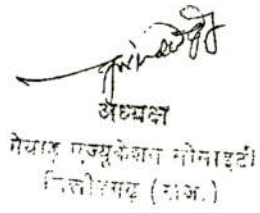 अध्यक्ष
मेवाड़ एज्युकेशन सोसाइटी
चित्तौड़गढ़ (राज.)